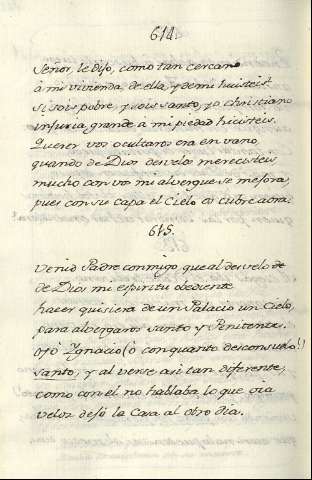 614.
Señor, le dijo, como tan cercano
à mi vivienda, de ella, y de mi huisteis?
si sois pobre, y sois santo, yo christiano
injuria grande à mi piedad hicisteis.
Querer vos ocultaros era en vano,
quando de Dios desvelo merecisteis
mucho con vos mi alvergue se mejora,
pues con su capa el Cielo os cubre aora.
615.
Venid Padre conmigo, que al desvelo de
de Dios mi espiritu obediente
hacer quisiera de un Palacio un Cielo,
para alvergaros santo y Penitente.
oyò Ygnacio (ò con quanto desconsuelo!)
santo, y al verse asi tan diferente,
como con el no hablaba, lo que oia
veloz dejò la Casa al otro dia.